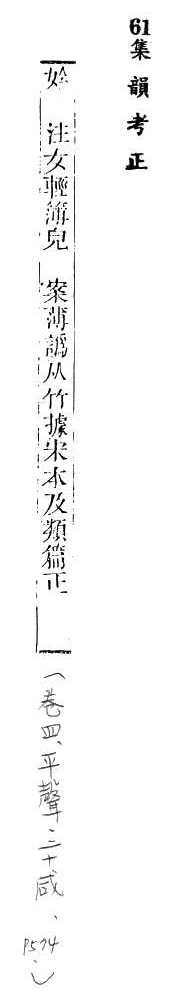 61集韻考正
姈 注女輕簿皃 案薄譌从竹據宋本及類篇正
(卷四、平聲、二十咸、P574.)